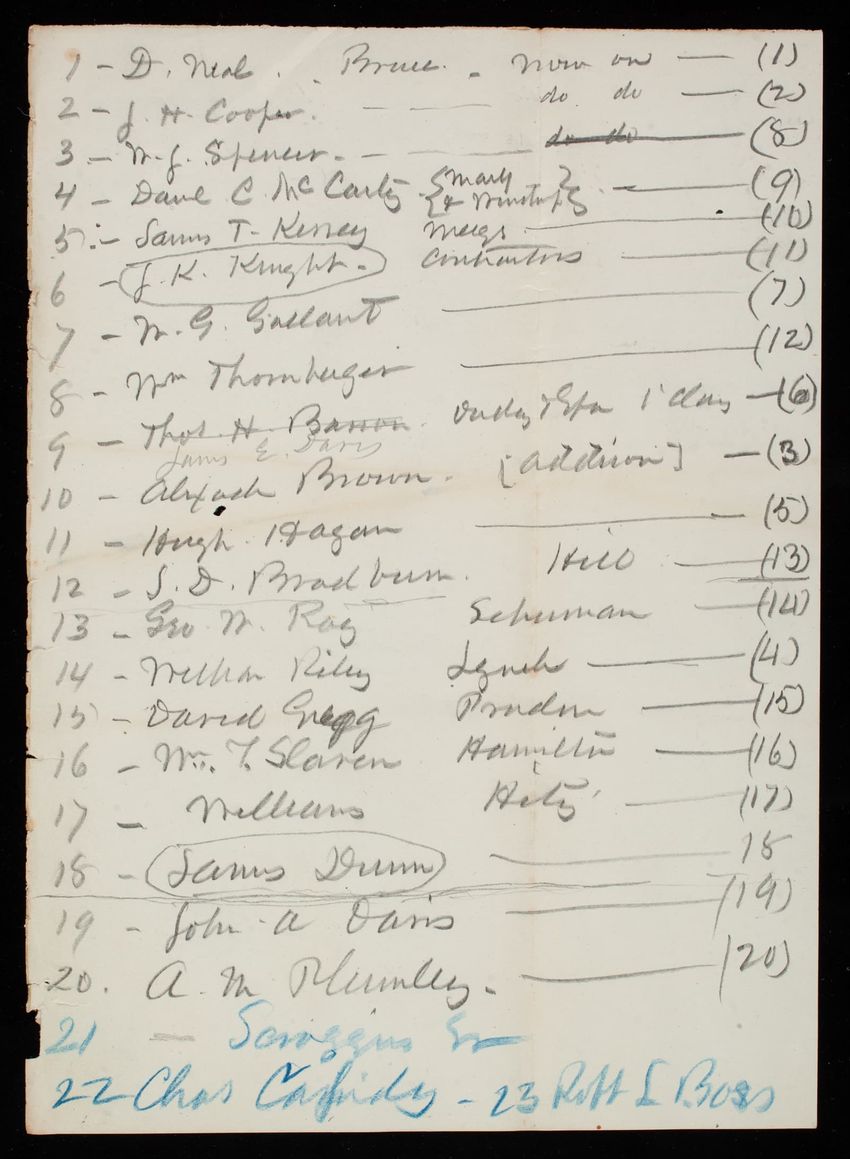 1 - D. Neal . Bruce. - Now on — (1)
2 - J. H. Cooper. — — do do — (2)
3. - W. J. Spencer. - — do do — (8)
4 - Dave C. McCarty {Mary & Winthrop} — (9)
5. - James T. Kenney Meigs — (10)
6 - J. K. Knight. Contractors — (11)
7 - W. G. Gallant — (7)
8 - Wm Thornburger — (12)
9 - Thos H. Barron. 1 day — (6)
James E. Davis
10 - Alexander Brown. [addition] — (3)
11 - Hugh Hagan — (5)
12 - S. D. Bradburn. Hill — (13)
13 - Geo W. Ray Schuman — (14)
14 - William Riley Lynch — (4)
15 - David Gregg Pruden — (15)
16 - Wm. T. Slaven Hamilton — (16)
17 - Williams Hitz — (17)
18 - James Dunn — 18
19 - John A Davis — (19)
20. A. M Plumley. — (20)
21 — Scroggins Sr
22 Chas Cassidy - 23 Robt L Boss